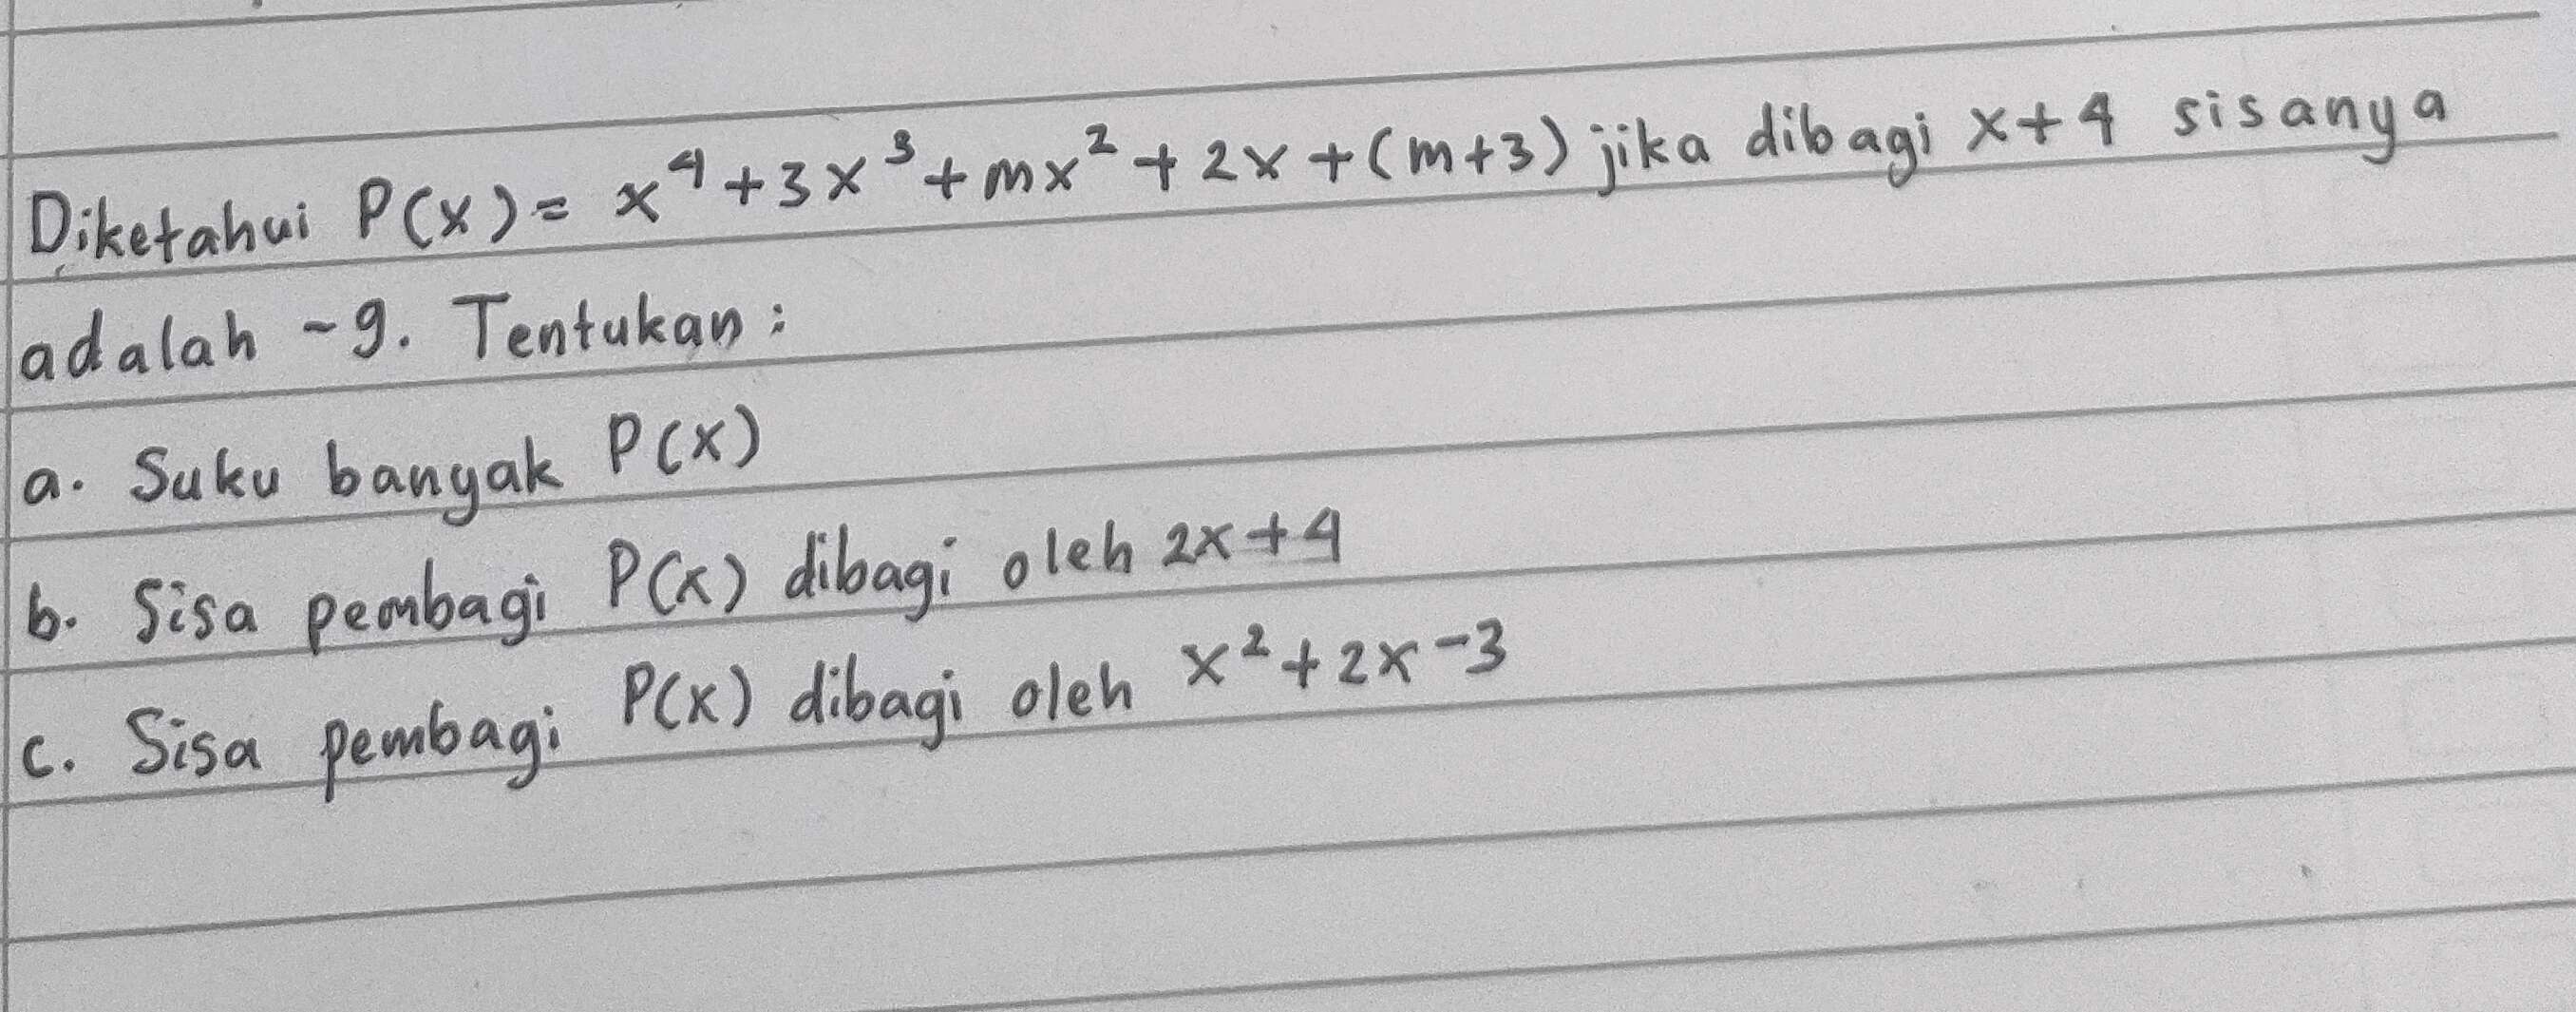 Diketahui P(x) = x⁴ + 3x³ + mx² + 2x + (m+3) jika dibagi x+4 sisanya
adalah -9. Tentukan :
a. Suku banyak P(x)
b. Sisa pembagi P(x) dibagi oleh 2x+4
c. Sisa pembagi P(x) dibagi oleh x²+2x-3